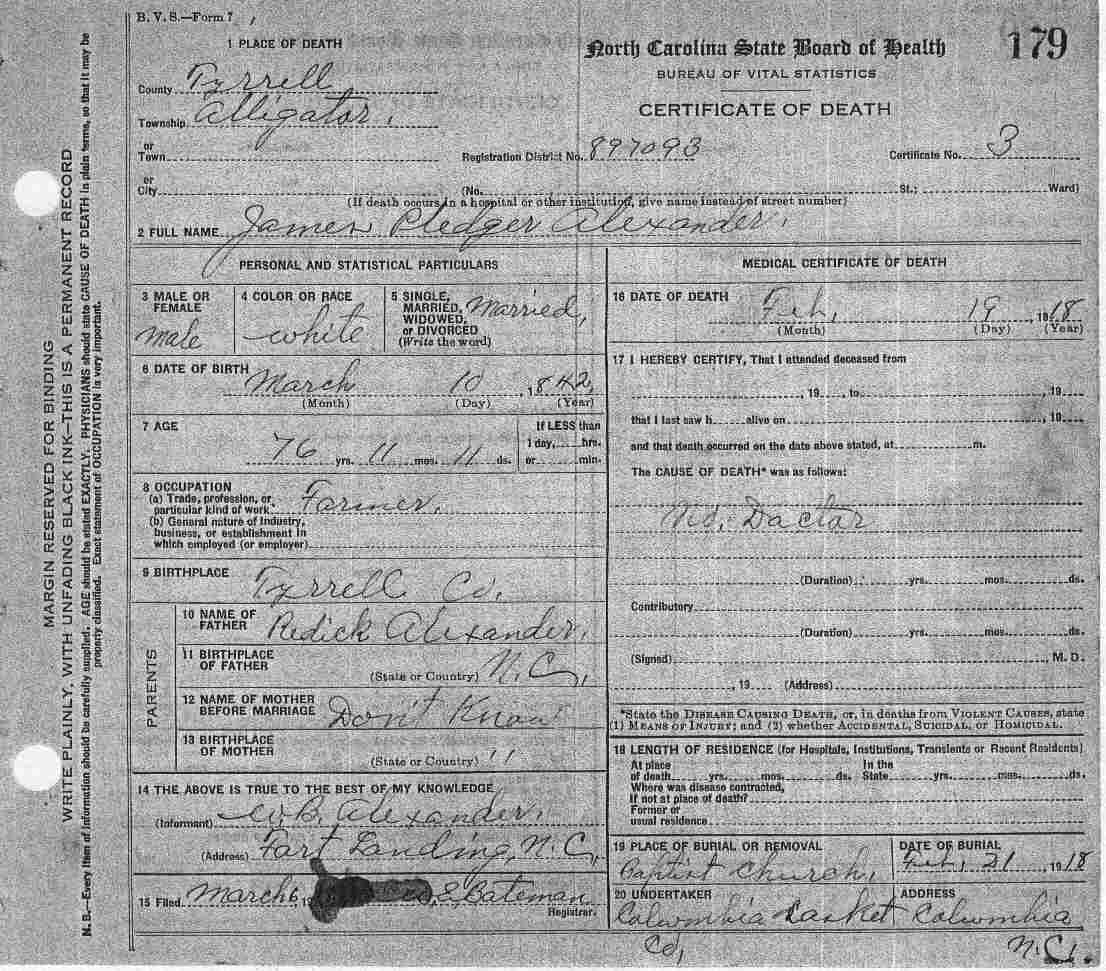 B. V. S.—Form 7
1 PLACE OF DEATH
County Tyrrell
Township Alligator.
or
Town
or
City
North Carolina State Board of Health
179
BUREAU OF VITAL STATISTICS
CERTIFICATE OF DEATH
Registration District No. 897093
Certificate No. 3
(No. St.; Ward)
(If death occurs in a hospital or other institution, give name instead of street number)
2 FULL NAME James Pledger Alexander.
PERSONAL AND STATISTICAL PARTICULARS
3 MALE OR FEMALE
male
4 COLOR OR RACE
white
5 SINGLE, MARRIED, WIDOWED, or DIVORCED
(Write the word)
Married,
6 DATE OF BIRTH
March 10, 1842,
(Month) (Day) (Year)
7 AGE
76 yrs. 11 mos. 11 ds.
If LESS than
1 day, hrs.
or min.
8 OCCUPATION
(a) Trade, profession, or
particular kind of work Farmer.
(b) General nature of industry,
business, or establishment in
which employed (or employer)
9 BIRTHPLACE Tyrrell Co,
PARENTS
10 NAME OF FATHER Redick Alexander,
11 BIRTHPLACE OF FATHER
(State or Country) N. C,
12 NAME OF MOTHER BEFORE MARRIAGE Don't Know
13 BIRTHPLACE OF MOTHER
(State or Country) 11
14 THE ABOVE IS TRUE TO THE BEST OF MY KNOWLEDGE
(Informant) W.B. Alexander.
(Address) Fort Landing, N. C,
15 Filed March 6, S Bateman
Registrar.
MEDICAL CERTIFICATE OF DEATH
16 DATE OF DEATH
Feb, 19 1918
(Month) (Day) (Year)
17 I HEREBY CERTIFY, That I attended deceased from
, 19 , to , 19
that I last saw h alive on , 19
and that death occurred on the date above stated, at m.
The CAUSE OF DEATH* was as follows:
No, Dactor
(Duration) yrs. mos. ds.
Contributory
(Duration) yrs. mos. ds.
(Signed) , M. D.
, 19 (Address)
*State the DISEASE CAUSING DEATH, or, in deaths from VIOLENT CAUSES, state
(1) MEANS OF INJURY; and (2) whether ACCIDENTAL, SUICIDAL, or HOMICIDAL.
18 LENGTH OF RESIDENCE (for Hospitals, Institutions, Transients or Recent Residents)
At place of death yrs. mos. ds. In the State yrs. mos. ds.
Where was disease contracted,
If not at place of death?
Former or
usual residence
19 PLACE OF BURIAL OR REMOVAL
Baptist Church,
DATE OF BURIAL
Feb, 21 1918
20 UNDERTAKER
Columbia Casket
Co,
ADDRESS
Columbia
N. C,
MARGIN RESERVED FOR BINDING
WRITE PLAINLY, WITH UNFADING BLACK INK—THIS IS A PERMANENT RECORD
N. B.—Every item of information should be carefully supplied. AGE should be stated EXACTLY. PHYSICIANS should state CAUSE OF DEATH in plain terms, so that it may be
properly classified. Exact statement of OCCUPATION is very important.